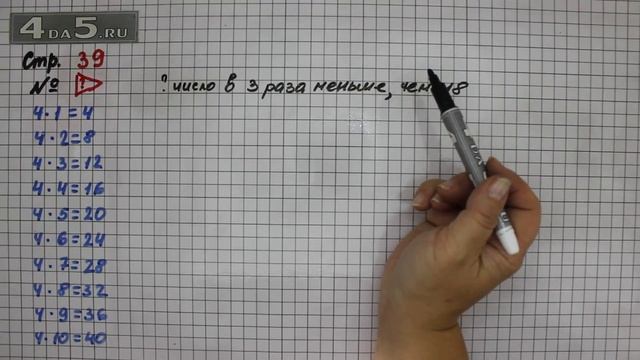 4DA5.RU
Стр. 39
№ 1
? число в 3 раза меньше, чем 18
4·1=4
4·2=8
4·3=12
4·4=16
4·5=20
4·6=24
4·7=28
4·8=32
4·9=36
4·10=40